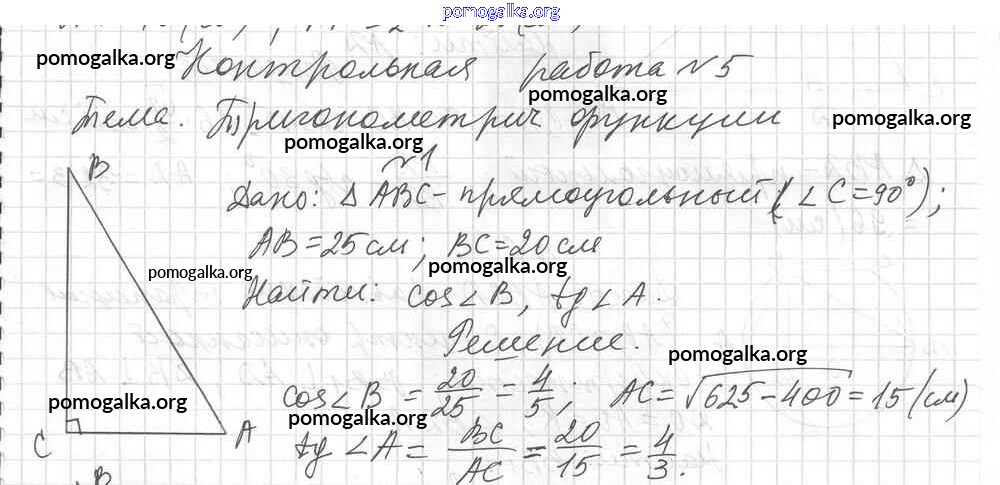 pomogalka.org
pomogalka.org
Контрольная работа №5
pomogalka.org
Тема. Тригонометрич функции
pomogalka.org
pomogalka.org
№1
B
Дано: △ ABC - прямоугольный (∠C=90°);
AB=25см; BC=20см
pomogalka.org
pomogalka.org
Найти: cos∠B, tg∠A.
Решение.
pomogalka.org
cos∠B = 20/25 = 4/5; AC=√625-400=15(см)
pomogalka.org
pomogalka.org
C A
tg∠A = BC/AC = 20/15 = 4/3.
B